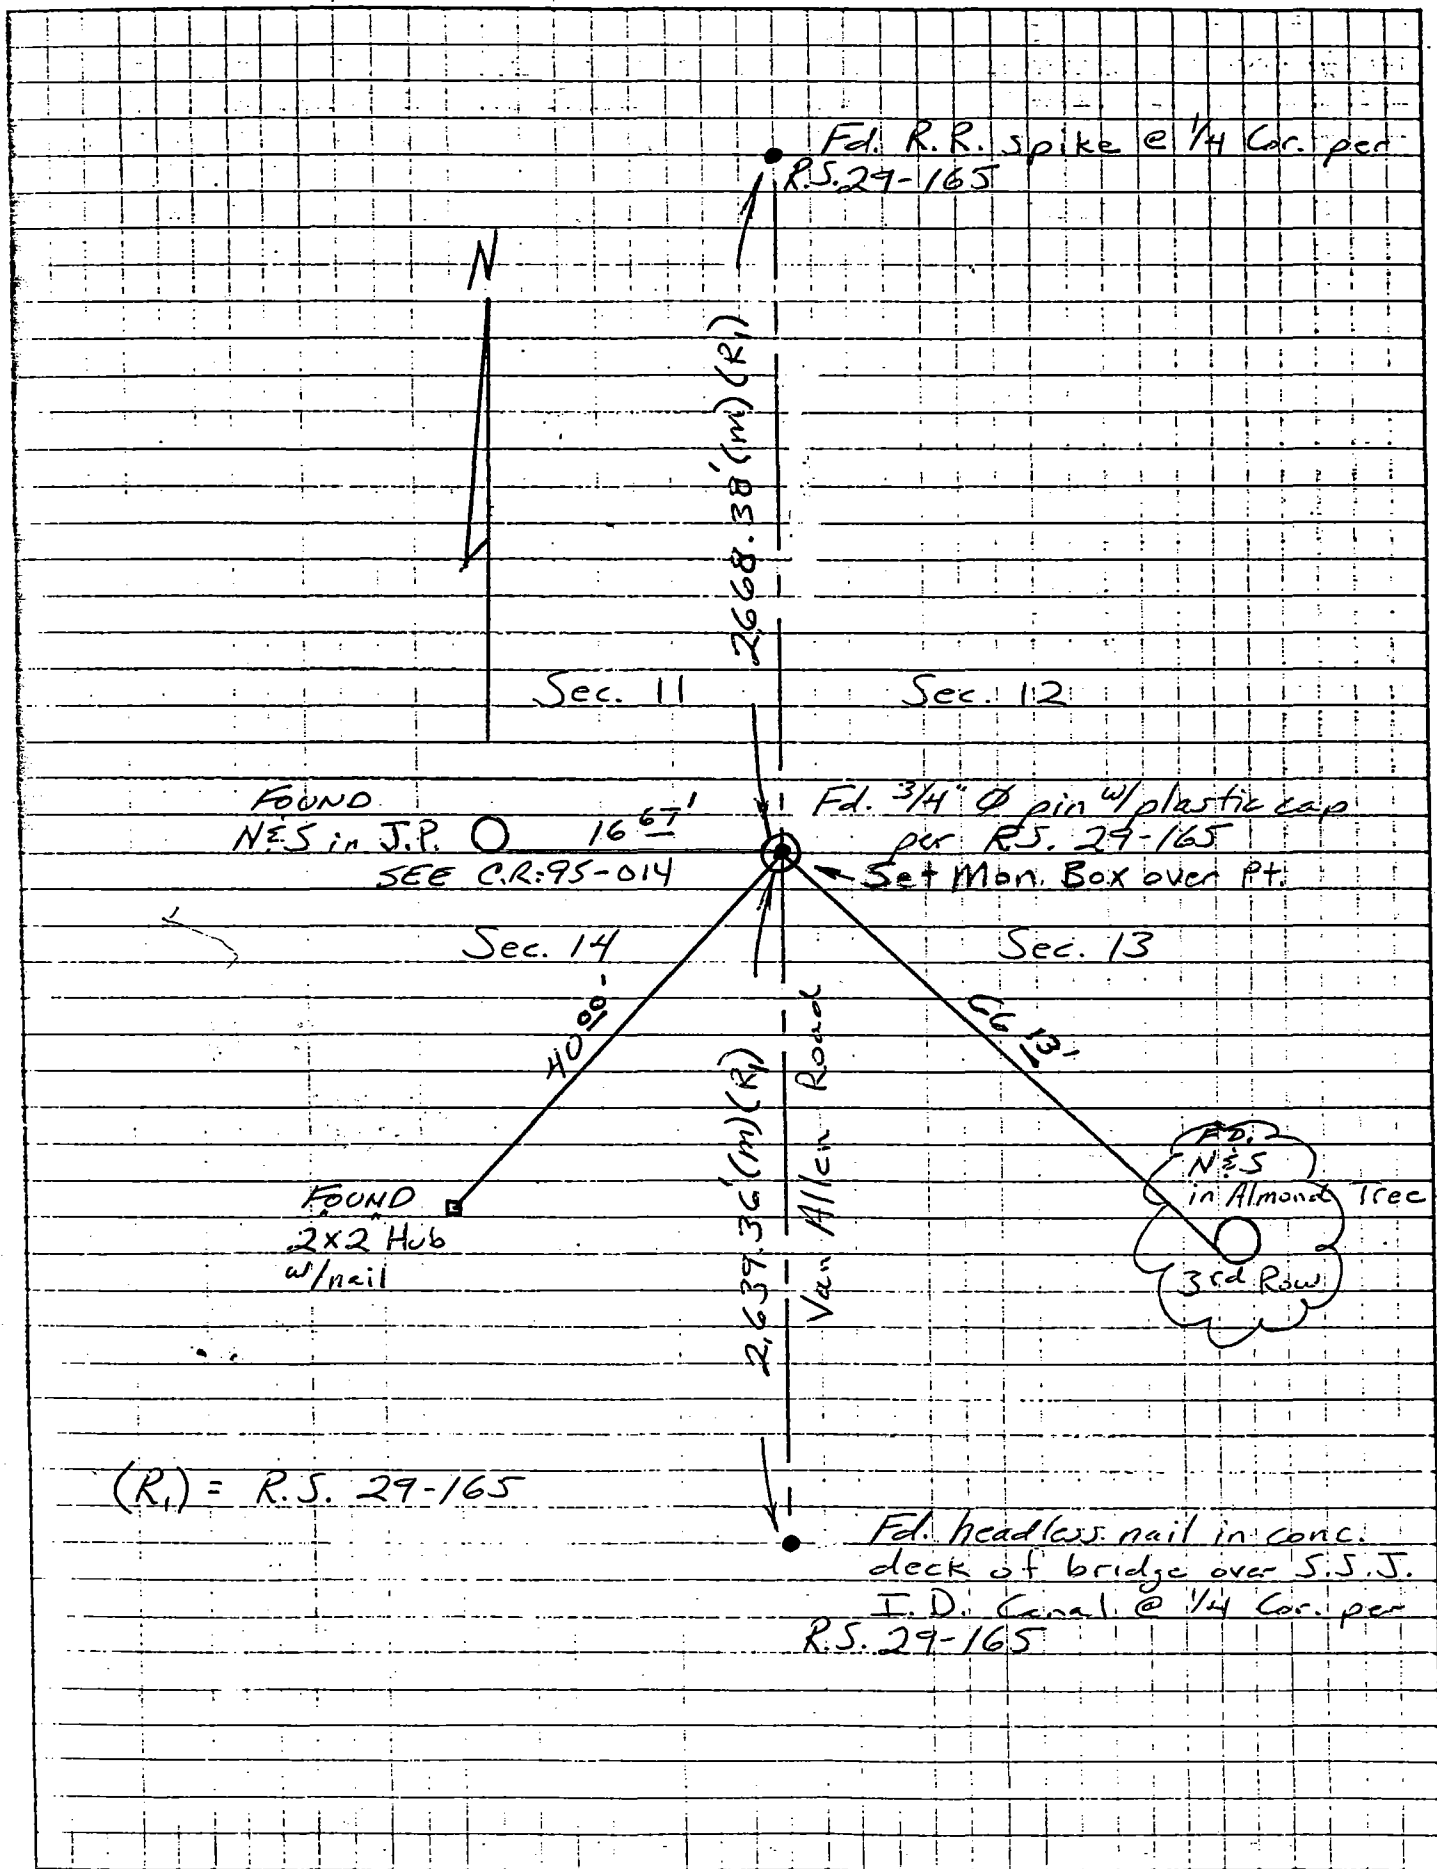 Fd. R.R. spike @ 1/4 Cor. per
R.S. 29-165
N
2668.38'(m)(R1)
Sec. 11
Sec. 12
FOUND
N&S in J.P.
16 67'
SEE C.R.:95-014
Fd. 3/4" Ø pin w/plastic cap
per R.S. 29-165
Set Mon. Box over Pt.
Sec. 14
Sec. 13
40 00'
66 13'
2,639.36'(m)(R1)
Van Allen Road
FOUND
2"x2" Hub
w/nail
FD.
N&S
in Almond Tree
3rd Row
(R1) = R.S. 29-165
Fd. headless nail in conc.
deck of bridge over S.S.J.
I.D. Canal @ 1/4 Cor. per
R.S. 29-165